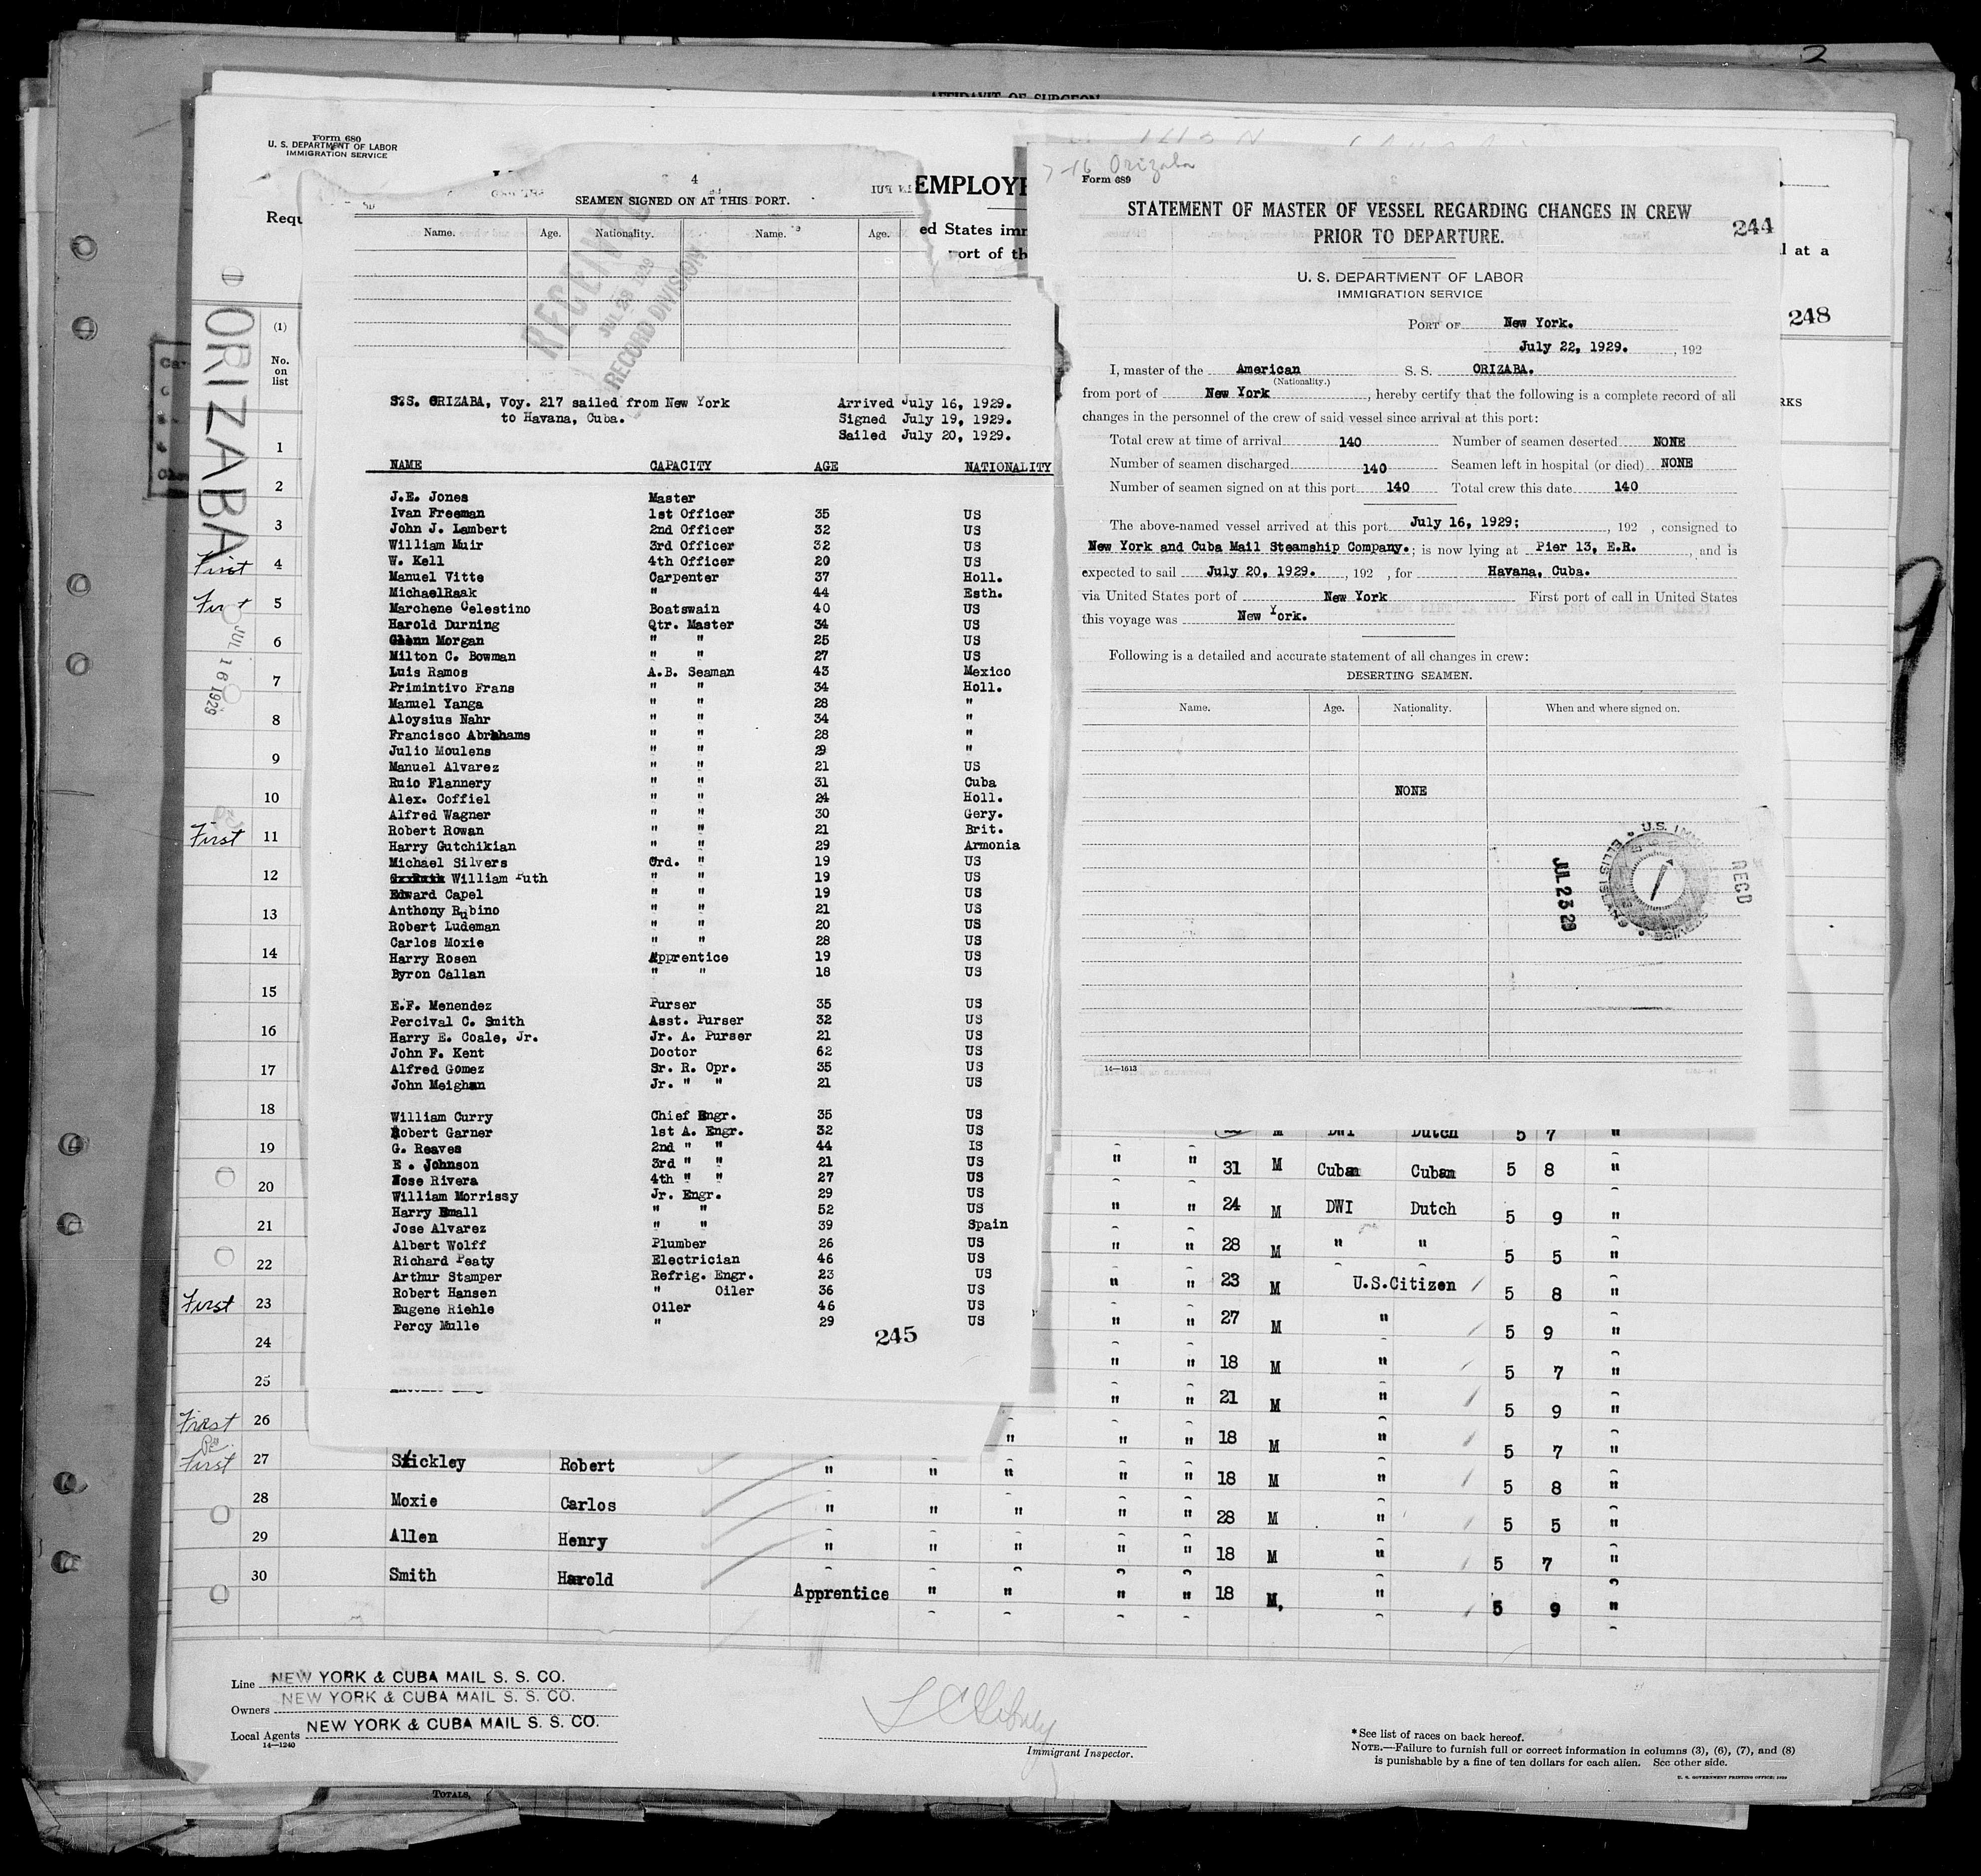 2
AFFIDAVIT OF SURGEON
Form 680
U. S. DEPARTMENT OF LABOR
IMMIGRATION SERVICE
EMPLOYE
Requ
ed States imm
port of th
l at a
248
RKS
ORIZABA
JUL 16 1929
(1)
No.
on
list
1
2
3
First 4
First 5
6
7
8
9
10
First 11
12
13
14
15
16
17
18
19
20
21
22
First 23
24
25
First 26
First 27
28
29
30
4
SEAMEN SIGNED ON AT THIS PORT.
Name. Age. Nationality. Name. Age.
RECEIVED
JUL 26 1929
RECORD DIVISION
S.S. ORIZABA, Voy. 217 sailed from New York Arrived July 16, 1929.
to Havana, Cuba. Signed July 19, 1929.
Sailed July 20, 1929.
NAME CAPACITY AGE NATIONALITY
J.E. Jones Master
Ivan Freeman 1st Officer 35 US
John J. Lambert 2nd Officer 32 US
William Muir 3rd Officer 32 US
W. Kell 4th Officer 20 US
Manuel Vitte Carpenter 37 Holl.
MichaelRaak " 44 Esth.
Marchene Celestino Boatswain 40 US
Harold Durning Qtr. Master 34 US
Glenn Morgan " " 25 US
Milton C. Bowman " " 27 US
Luis Ramos A.B. Seaman 43 Mexico
Primintivo Frans " " 34 Holl.
Manuel Yanga " " 28 "
Aloysius Nahr " " 34 "
Francisco Abrahams " " 28 "
Julio Moulens " " 29 "
Manuel Alvarez " " 21 US
Ruio Flannery " " 31 Cuba
Alex. Coffiel " " 24 Holl.
Alfred Wagner " " 30 Gery.
Robert Rowan " " 21 Brit.
Harry Gutchikian " " 29 Armonia
Michael Silvers Ord. " 19 US
William Puth " " 19 US
Edward Capel " " 19 US
Anthony Rubino " " 21 US
Robert Ludeman " " 20 US
Carlos Moxie " " 28 US
Harry Rosen Apprentice 19 US
Byron Callan " " 18 US
E.F. Menendez Purser 35 US
Percival C. Smith Asst. Purser 32 US
Harry E. Coale, Jr. Jr. A. Purser 21 US
John F. Kent Doctor 62 US
Alfred Gomez Sr. R. Opr. 35 US
John Meighan Jr. " " 21 US
William Curry Chief Engr. 35 US
Robert Garner 1st A. Engr. 32 US
G. Reaves 2nd " " 44 IS
E . Johnson 3rd " " 21 US
Jose Rivera 4th " " 27 US
William Morrissy Jr. Engr. 29 US
Harry Small " " 52 US
Jose Alvarez " " 39 Spain
Albert Wolff Plumber 26 US
Richard Peaty Electrician 46 US
Arthur Stamper Refrig. Engr. 23 US
Robert Hansen " Oiler 36 US
Eugene Riehle Oiler 46 US
Percy Mulle " 29 US
245
7-16 Orizaba
Form 689
STATEMENT OF MASTER OF VESSEL REGARDING CHANGES IN CREW
PRIOR TO DEPARTURE.
244
U. S. DEPARTMENT OF LABOR
IMMIGRATION SERVICE
PORT OF New York.
July 22, 1929. , 192
I, master of the American S. S. ORIZABA.
(Nationality.)
from port of New York , hereby certify that the following is a complete record of all
changes in the personnel of the crew of said vessel since arrival at this port:
Total crew at time of arrival 140 Number of seamen deserted NONE
Number of seamen discharged 140 Seamen left in hospital (or died) NONE
Number of seamen signed on at this port 140 Total crew this date 140
The above-named vessel arrived at this port July 16, 1929; , 192 , consigned to
New York and Cuba Mail Steamship Company. ; is now lying at Pier 13, E.R. , and is
expected to sail July 20, 1929. , 192 , for Havana, Cuba.
via United States port of New York First port of call in United States
this voyage was New York.
Following is a detailed and accurate statement of all changes in crew:
DESERTING SEAMEN.
Name. Age. Nationality. When and where signed on.
NONE
JUL 23 29
RECD
14—1613
M DWI Dutch 5 7 "
" " 31 M Cuban Cuban 5 8 "
" " 24 M DWI Dutch 5 9 "
" " 28 M " " 5 5 "
" " 23 M U.S.Citizen 5 8 "
" " 27 M " 5 9 "
" " 18 M " 5 7 "
" " 21 M " 5 9 "
" " " 18 M " 5 7 "
Stickley Robert " " " " " 18 M " 5 8 "
Moxie Carlos " " " " " 28 M " 5 5 "
Allen Henry " " " " " 18 M " 5 7 "
Smith Harold Apprentice " " " " 18 M, " 5 9 "
Line NEW YORK & CUBA MAIL S. S. CO.
Owners NEW YORK & CUBA MAIL S. S. CO.
Local Agents NEW YORK & CUBA MAIL S. S. CO.
14—1240
Immigrant Inspector.
*See list of races on back hereof.
NOTE.—Failure to furnish full or correct information in columns (3), (6), (7), and (8)
is punishable by a fine of ten dollars for each alien. See other side.
TOTALS,